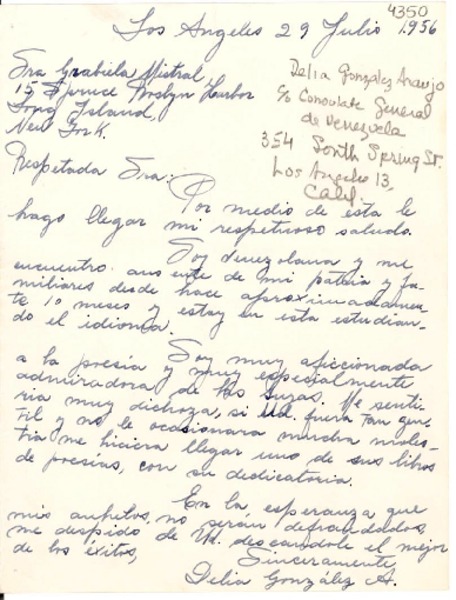 4350
Los Angeles 29 Julio 1956
Sra Grabiela Mistral
15 Spruce Roslyn Harbor
Long Island,
New York.
Delia González Araujo
c/o Consulate General
de Venezuela
354 South Spring St.
Los Angeles 13,
Calif.
Respetada Sra:
Por medio de esta le
hago llegar mi respetuoso saludo.
Soy Venezolana y me
encuentro ausente de mi patria y fa-
miliares desde hace aproximadamen-
te 10 meses y estoy en esta estudian-
do el idioma.
Soy muy aficionada
a la poesía y muy especialmente
admiradora de las suyas. Me senti-
ría muy dichoza, si Ud. fuera tan gen-
til y no le ocasionara mucha moles-
tia me hiciera llegar uno de sus libros
de poesías, con su dedicatoria.
En la esperanza que
mis anhelos, no serán defraudados,
me despido de Ud. deseandole el mejor
de los éxitos,
Sinceramente,
Delia González A.